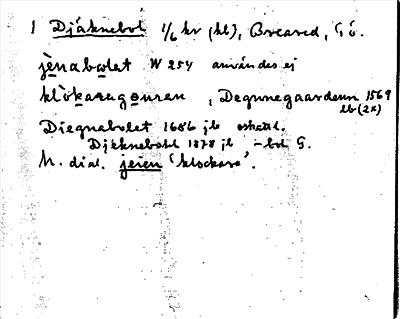 1 Djäknebol 1/6 kr (kl), Breared, Gö.
jènabolet W 254 användes ej
klòkaregouren, Degnnegaardenn 1569
lb (2x)
Diegnabolet 1686 jb
Djäknebohl 1878 jb -bol G.
M. dial. jeien 'klockare'.